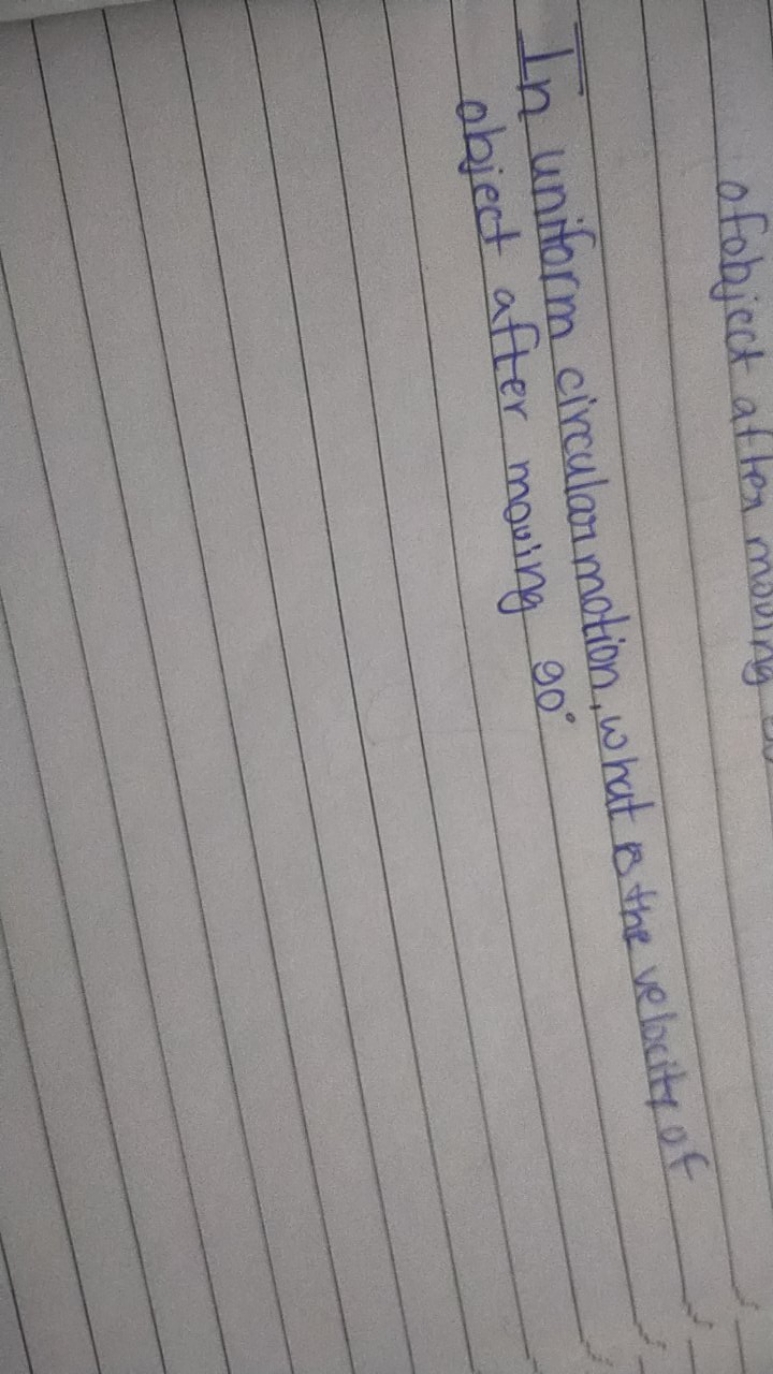 of object after moving
In uniform circular motion, what is the velocity of
object after moving 90°